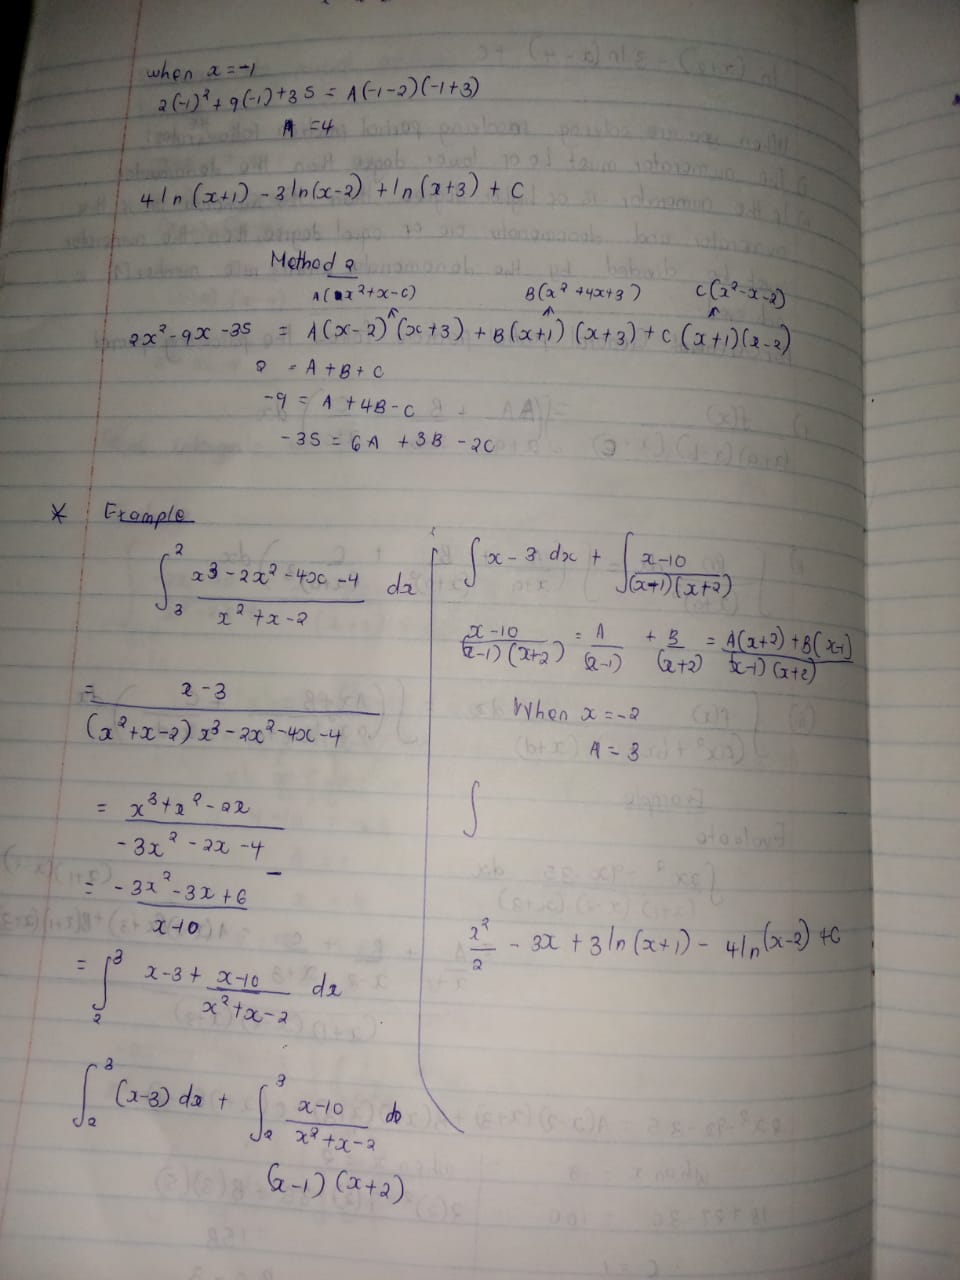 when x = -1
2(-1)² + 9(-1) + 35 = A(-1-2)(-1+3)
A = 4
4 ln (x+1) - 3 ln(x-2) + ln (x+3) + C
Method 2
A(x²+x-c) B(x² +4x+3) C(x²-x-2)
2x²-9x-35 = A(x-2)(x+3) + B(x+1)(x+3) + C(x+1)(x-2)
2 = A + B + C
-9 = A + 4B - C
-35 = 6A + 3B - 2C
* Example
∫₃² x³-2x²-4x-4 / x²+x-2 dx
= x-3
(x²+x-2) x³-2x²-4x-4
= x³+x²-2x
-3x²-2x-4
= -3x²-3x+6
x-10
= ∫₂³ x-3 + x-10 / x²+x-2 dx
∫₂³ (x-3) dx + ∫₂³ x-10 / x²+x-2 dx
(x-1)(x+2)
∫ x-3 dx + ∫ x-10 / (x+1)(x+2)
x-10 / (x-1)(x+2) = A / (x-1) + B / (x+2) = A(x+2)+B(x-1) / (x-1)(x+2)
When x = -2
A = 3
∫
x²/2 - 3x + 3 ln(x+1) - 4 ln(x-2) + C